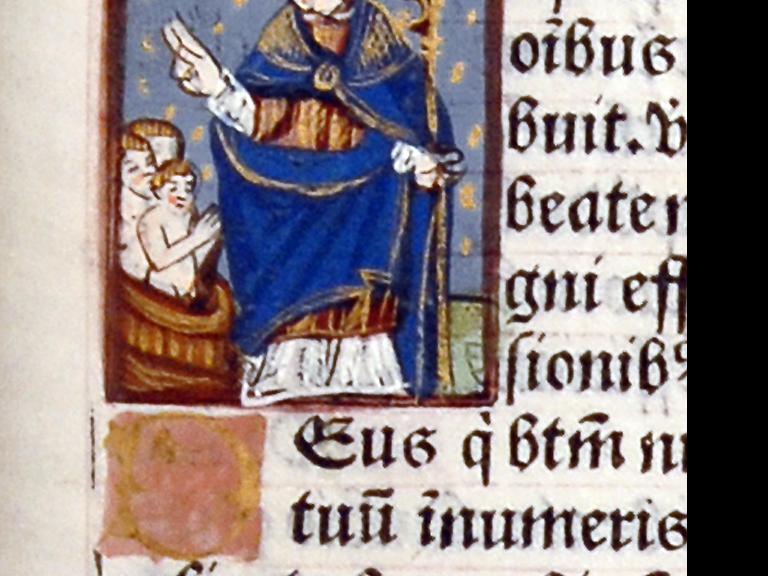 oībus
buit. V̇
beate n
gni eff
sionibꝰ
Eus q̇ btm̄ ni
tuū īnumeris